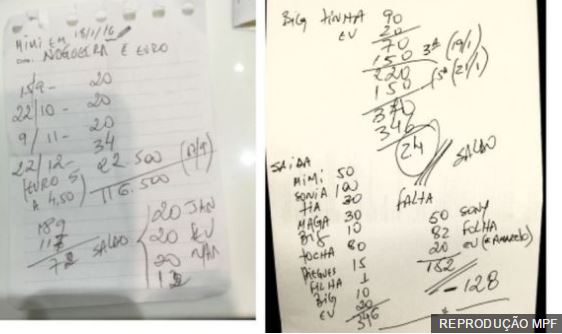 MIMI EM 18/1/16
NOGUEIRA E EURO
15/9 - 20
22/10 - 20
9/11 - 20
34
22/12 - 22.500 (17/9)
(EURO 5 116.500
A 4,50)
189
117
72 SALDO
20 JAN
20 FEV
20 MAR
12
BIG TINHA 90
EU 20
70
150 3ª (19/1)
220
150 5ª (21/1)
370
346
24 SALDO
SAIDA
MIMI 50
SONIA 100
TIA 30
MAGA 30
BIG 10
TOCHA 80
DIEGUES 15
FILHA 1
BIG 10
EU 20
346
FALTA
50 SONY
82 FOLHA
20 EU
152
- 128
REPRODUÇÃO MPF